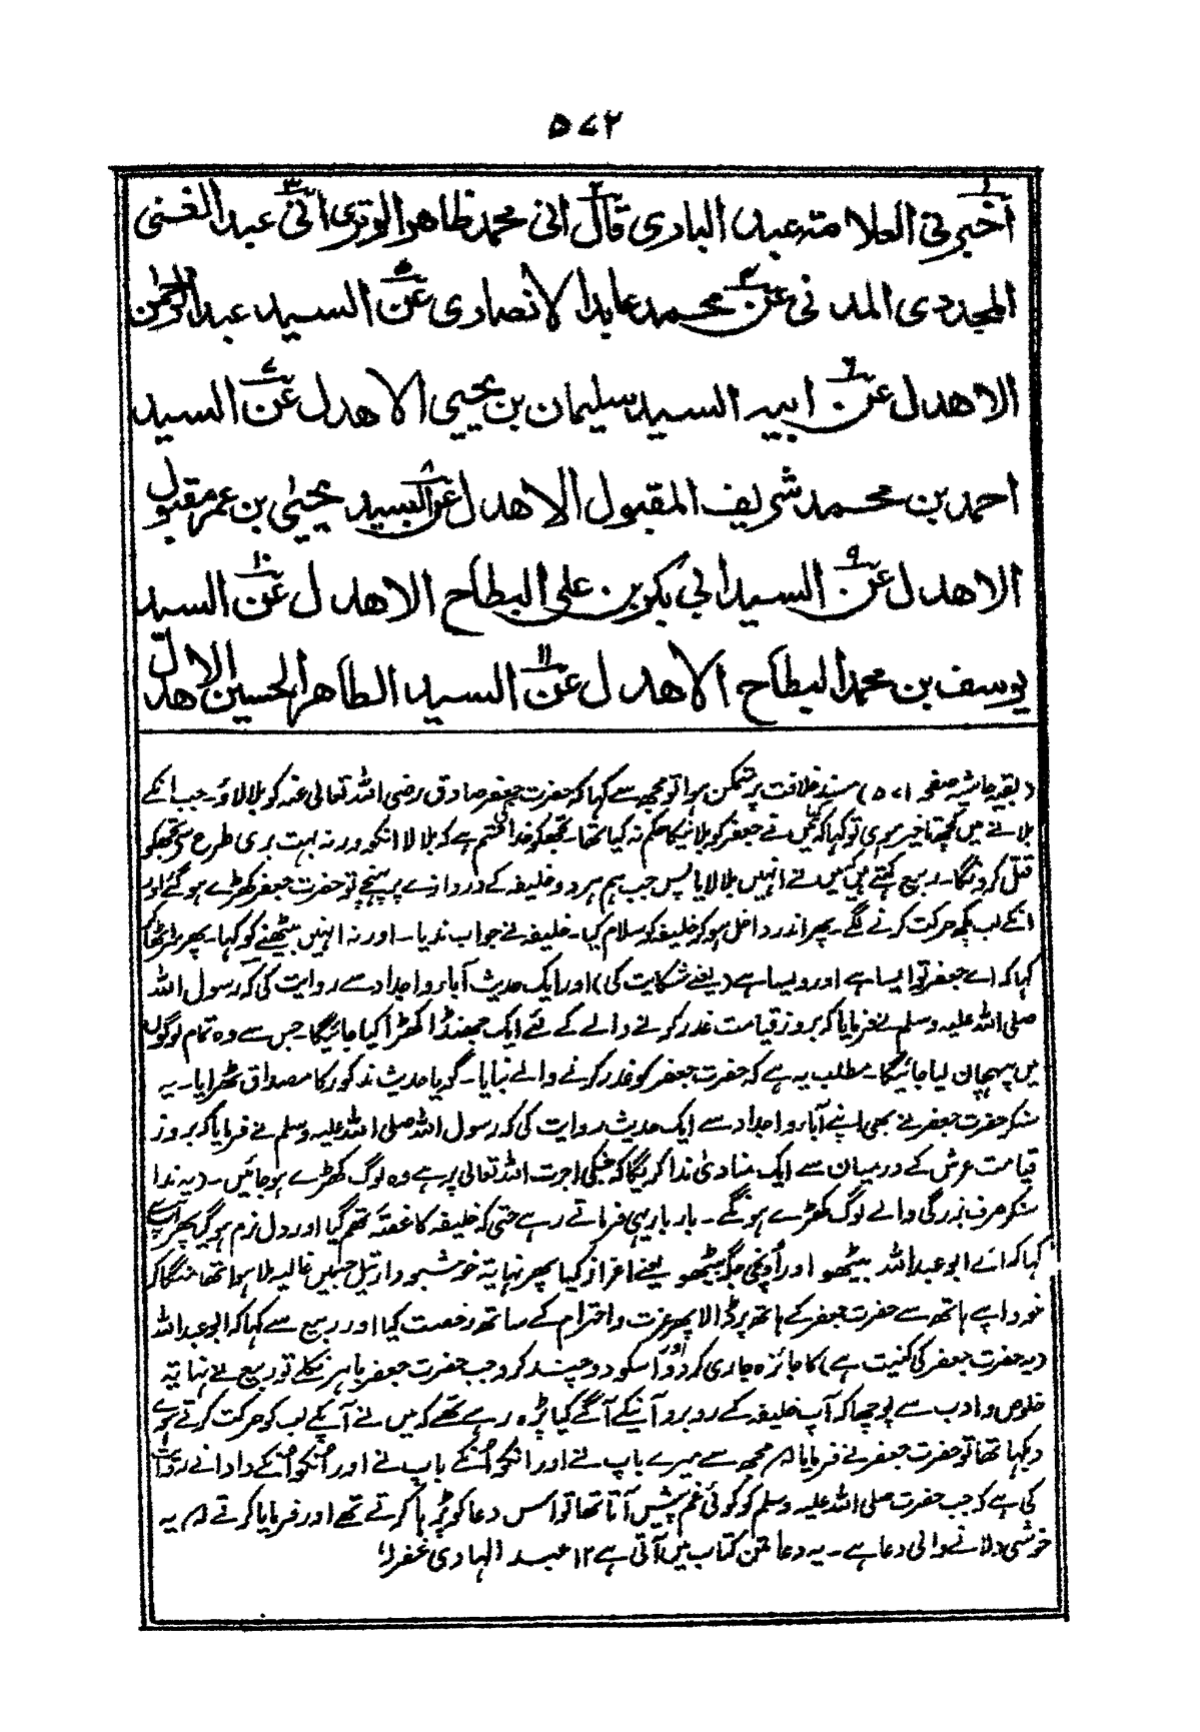 ۵۷۲
اخبرني العلامة عبد البادی قال انی محمد ظاهر الوتری انی عبد الغنی
المجددی المدنی عن محمد عابد الانصاری عن السید عبد الرحمن
الاهدل عن ابیه السید سلیمان بن یحیی الاهدل عن السید
احمد بن محمد شریف المقبول الاهدل عن السید یحیی بن عمر مقبول
الاهدل عن السید ابی بکر بن علی البطاح الاهدل عن السید
یوسف بن محمد البطاح الاهدل عن السید الطاهر الحسین الاهدل
(بقیہ حاشیہ صفحہ ۵۷۱) مسند خلافت پر متمکن ہوا تو مجھ سے کہا کہ حضرت جعفر صادق رضی اللہ تعالی عنہ کو بلا لاؤ۔ جب انکے
بلانے میں کچھ تاخیر ہوی تو کہا کہ کیا میں نے جعفر کو بلانیکا حکم نہ کیا تھا۔ تجھکو خدا کی قسم ہے کہ بلا لا انکو ورنہ بہت بری طرح سے تجھکو
قتل کردونگا۔ ربیع کہتے ہیں کہ میں نے انہیں بلا لایا پس جب ہم ہر دو خلیفہ کے دروازے پر پہنچے تو حضرت جعفر کھڑے ہو گئے اور
انکے لب کچھ حرکت کرنے لگے۔ پھر اندر داخل ہو کر خلیفہ کو سلام کیا۔ خلیفہ نے جواب ندیا۔ اور نہ انہیں بیٹھنے کو کہا۔ پھر سر اٹھا کر
کہا کہ اے جعفر تو ایسا ہے اور ویسا ہے (یعنے شکایت کی) اور ایک حدیث آباء و اجداد سے روایت کی کہ رسول اللہ
صلی اللہ علیہ وسلم نے فرمایا کہ بروز قیامت غدر کرنے والے کے لئے ایک جھنڈا کھڑا کیا جائیگا۔ جس سے وہ تمام لوگوں
میں پہچان لیا جائیگا۔ مطلب یہ ہے کہ حضرت جعفر کو غدر کرنے والے بنایا۔ گویا حدیث مذکور کا مصداق ٹھرایا۔ یہ
سنکر حضرت جعفر نے بھی اپنے آباء و اجداد سے ایک حدیث روایت کی کہ رسول اللہ صلی اللہ علیہ وسلم نے فرمایا کہ بروز
قیامت عرش کے درمیان سے ایک منادی ندا کریگا کہ جنکی اجرت اللہ تعالی پر ہے وہ لوگ کھڑے ہوجائیں۔ (یہ ندا
سنکر صرف بزرگی والے لوگ کھڑے ہونگے۔ بار بار یہی فرماتے رہے حتی کہ خلیفہ کا غصہ تھم گیا اور دل نرم ہوگیا پھر آپ سے
کہا کہ اے ابو عبداللہ بیٹھو اور اونچی جگہ بیٹھو یعنے اعزاز کیا پھر نہایت خوشبودار تیل جسمیں غالیہ ملا ہوا تھا منگا کر
خود اپنے ہاتھ سے حضرت جعفر کے ہاتھ پر ڈالا پھر عزت و احترام کے ساتھ رخصت کیا اور ربیع سے کہا کہ ابو عبداللہ
(یہ حضرت جعفر کی کنیت ہے) کا جائزہ جاری کردو اور اسکو دو چند کرو جب حضرت جعفر باہر نکلے تو ربیع نے نہایت
خلوص و ادب سے پوچھا کہ آپ خلیفہ کے روبرو آنیکے آگے کیا پڑہ رہے تھے کہ میں نے آپکے لب کو حرکت کرتے ہوے
دیکھا تھا تو حضرت جعفر نے فرمایا مجھ سے میرے باپ نے اور انکو انکے باپ نے اور انکو انکے دادا نے روایت
کی ہے کہ جب حضرت صلی اللہ علیہ وسلم کو کوئی غم پیش آتا تھا تو اس دعا کو پڑہا کرتے تھے اور فرمایا کرتے یہ
خوشی دلانے والی دعا ہے۔ یہ دعا متن کتاب میں آتی ہے ۱۲ عبد الہادی غفرلہ